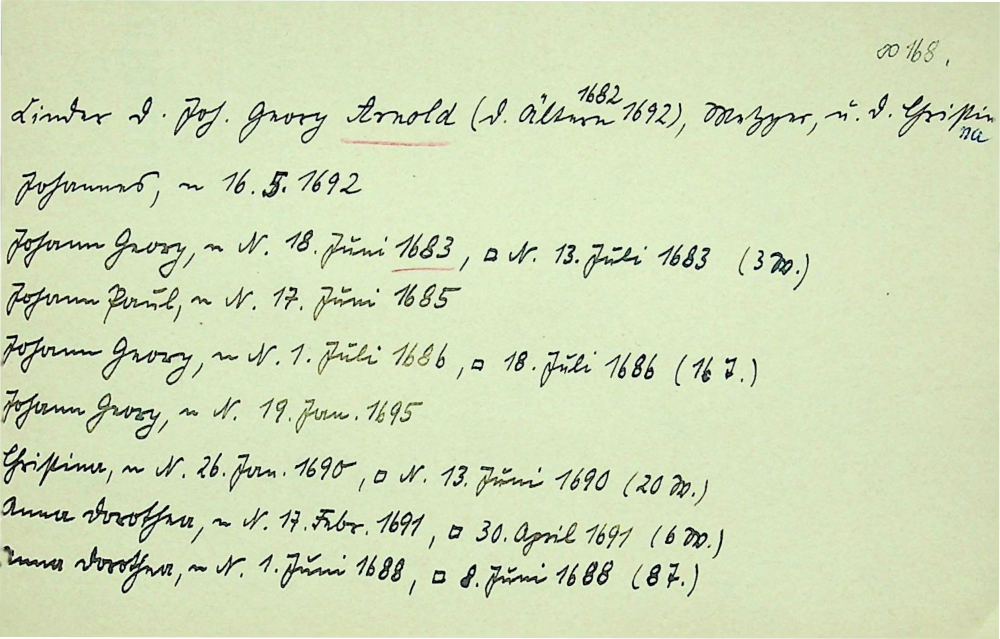 ∞ 168.
Kinder d. Joh. Georg Arnold (d. Ältern 1682 1692), Metzger, u. d. Christina
Johannes, ~ 16. 5. 1692
Johann Georg, ~ N. 18. Juni 1683, □ N. 13. Juli 1683 (3 W.)
Johann Paul, ~ N. 17. Juni 1685
Johann Georg, ~ N. 1. Juli 1686, □ 18. Juli 1686 (16 T.)
Johann Georg, ~ N. 19. Jan. 1695
Christina, ~ N. 26. Jan. 1690, □ N. 13. Juni 1690 (20 W.)
Anna Dorothea, ~ N. 17. Febr. 1691, □ 30. April 1691 (6 W.)
Anna Dorothea, ~ N. 1. Juni 1688, □ 8. Juni 1688 (8 T.)